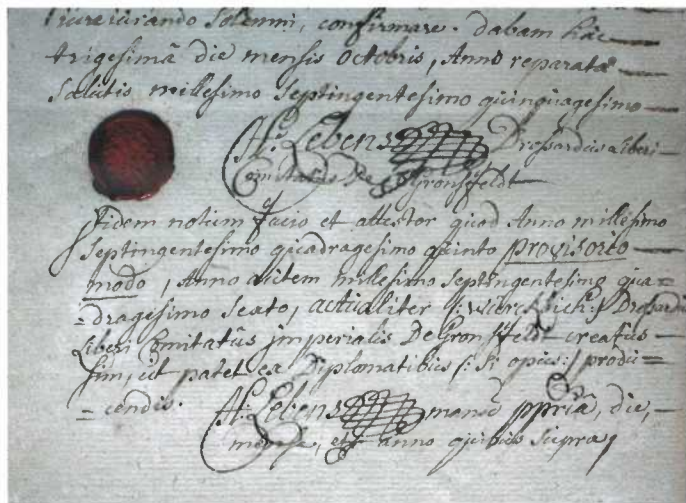 Jureiurando Solemni, confirmare. dabam hâc
trigesimâ die mensis Octobris, Anno reparatæ
Salutis millesimo Septingentesimo quinquagesimo
H: Lebens Drossardus liberi
Comitatus De Gronsffeldt
Fidem notum facio et attestor quod Anno millesimo
Septingentesimo quadragesimo quinto provisorio
modo, Anno autem millesimo Septingentesimo qua=
=dragesimo Sexto, actualiter /: würcklich :/ Drossardus
Liberi Comitatûs jmperialis De Gronsffeldt creatus
sim, ut patet ex Diplomatibus /: Si opus :/ produ=
=cendis.
H: Lebens manu ppriâ, die,
mense, et anno quibus Supra